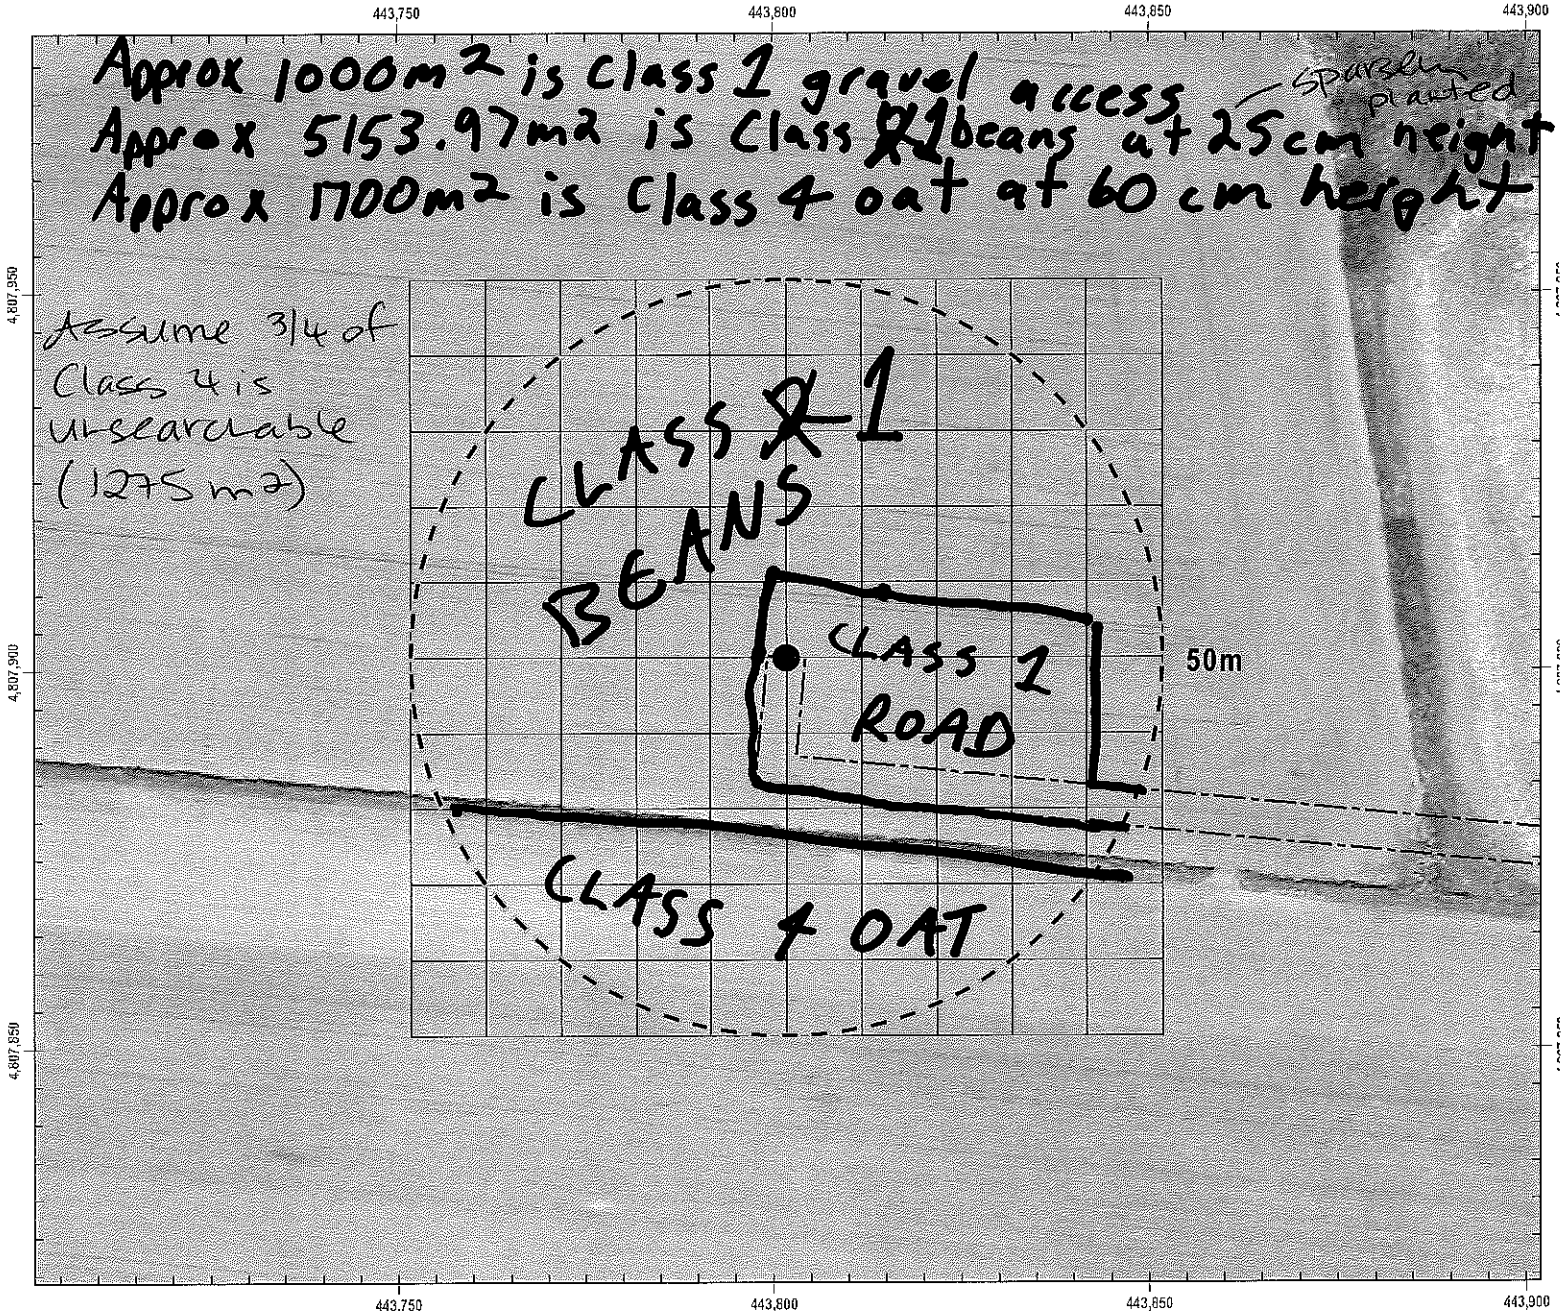 443,750 443,800 443,850 443,900
Approx 1000m² is Class 1 gravel access
sparsely
planted
Approx 5153.97m2 is Class 1 beans at 25cm height
Approx 1700m² is Class 4 oat at 60 cm height
4,807,950
Assume 3/4 of
Class 4 is
unsearchable
(1275 m2)
CLASS 1
BEANS
4,807,900
CLASS 1
ROAD
50m
CLASS 4 OAT
4,807,850
443,750 443,800 443,850 443,900